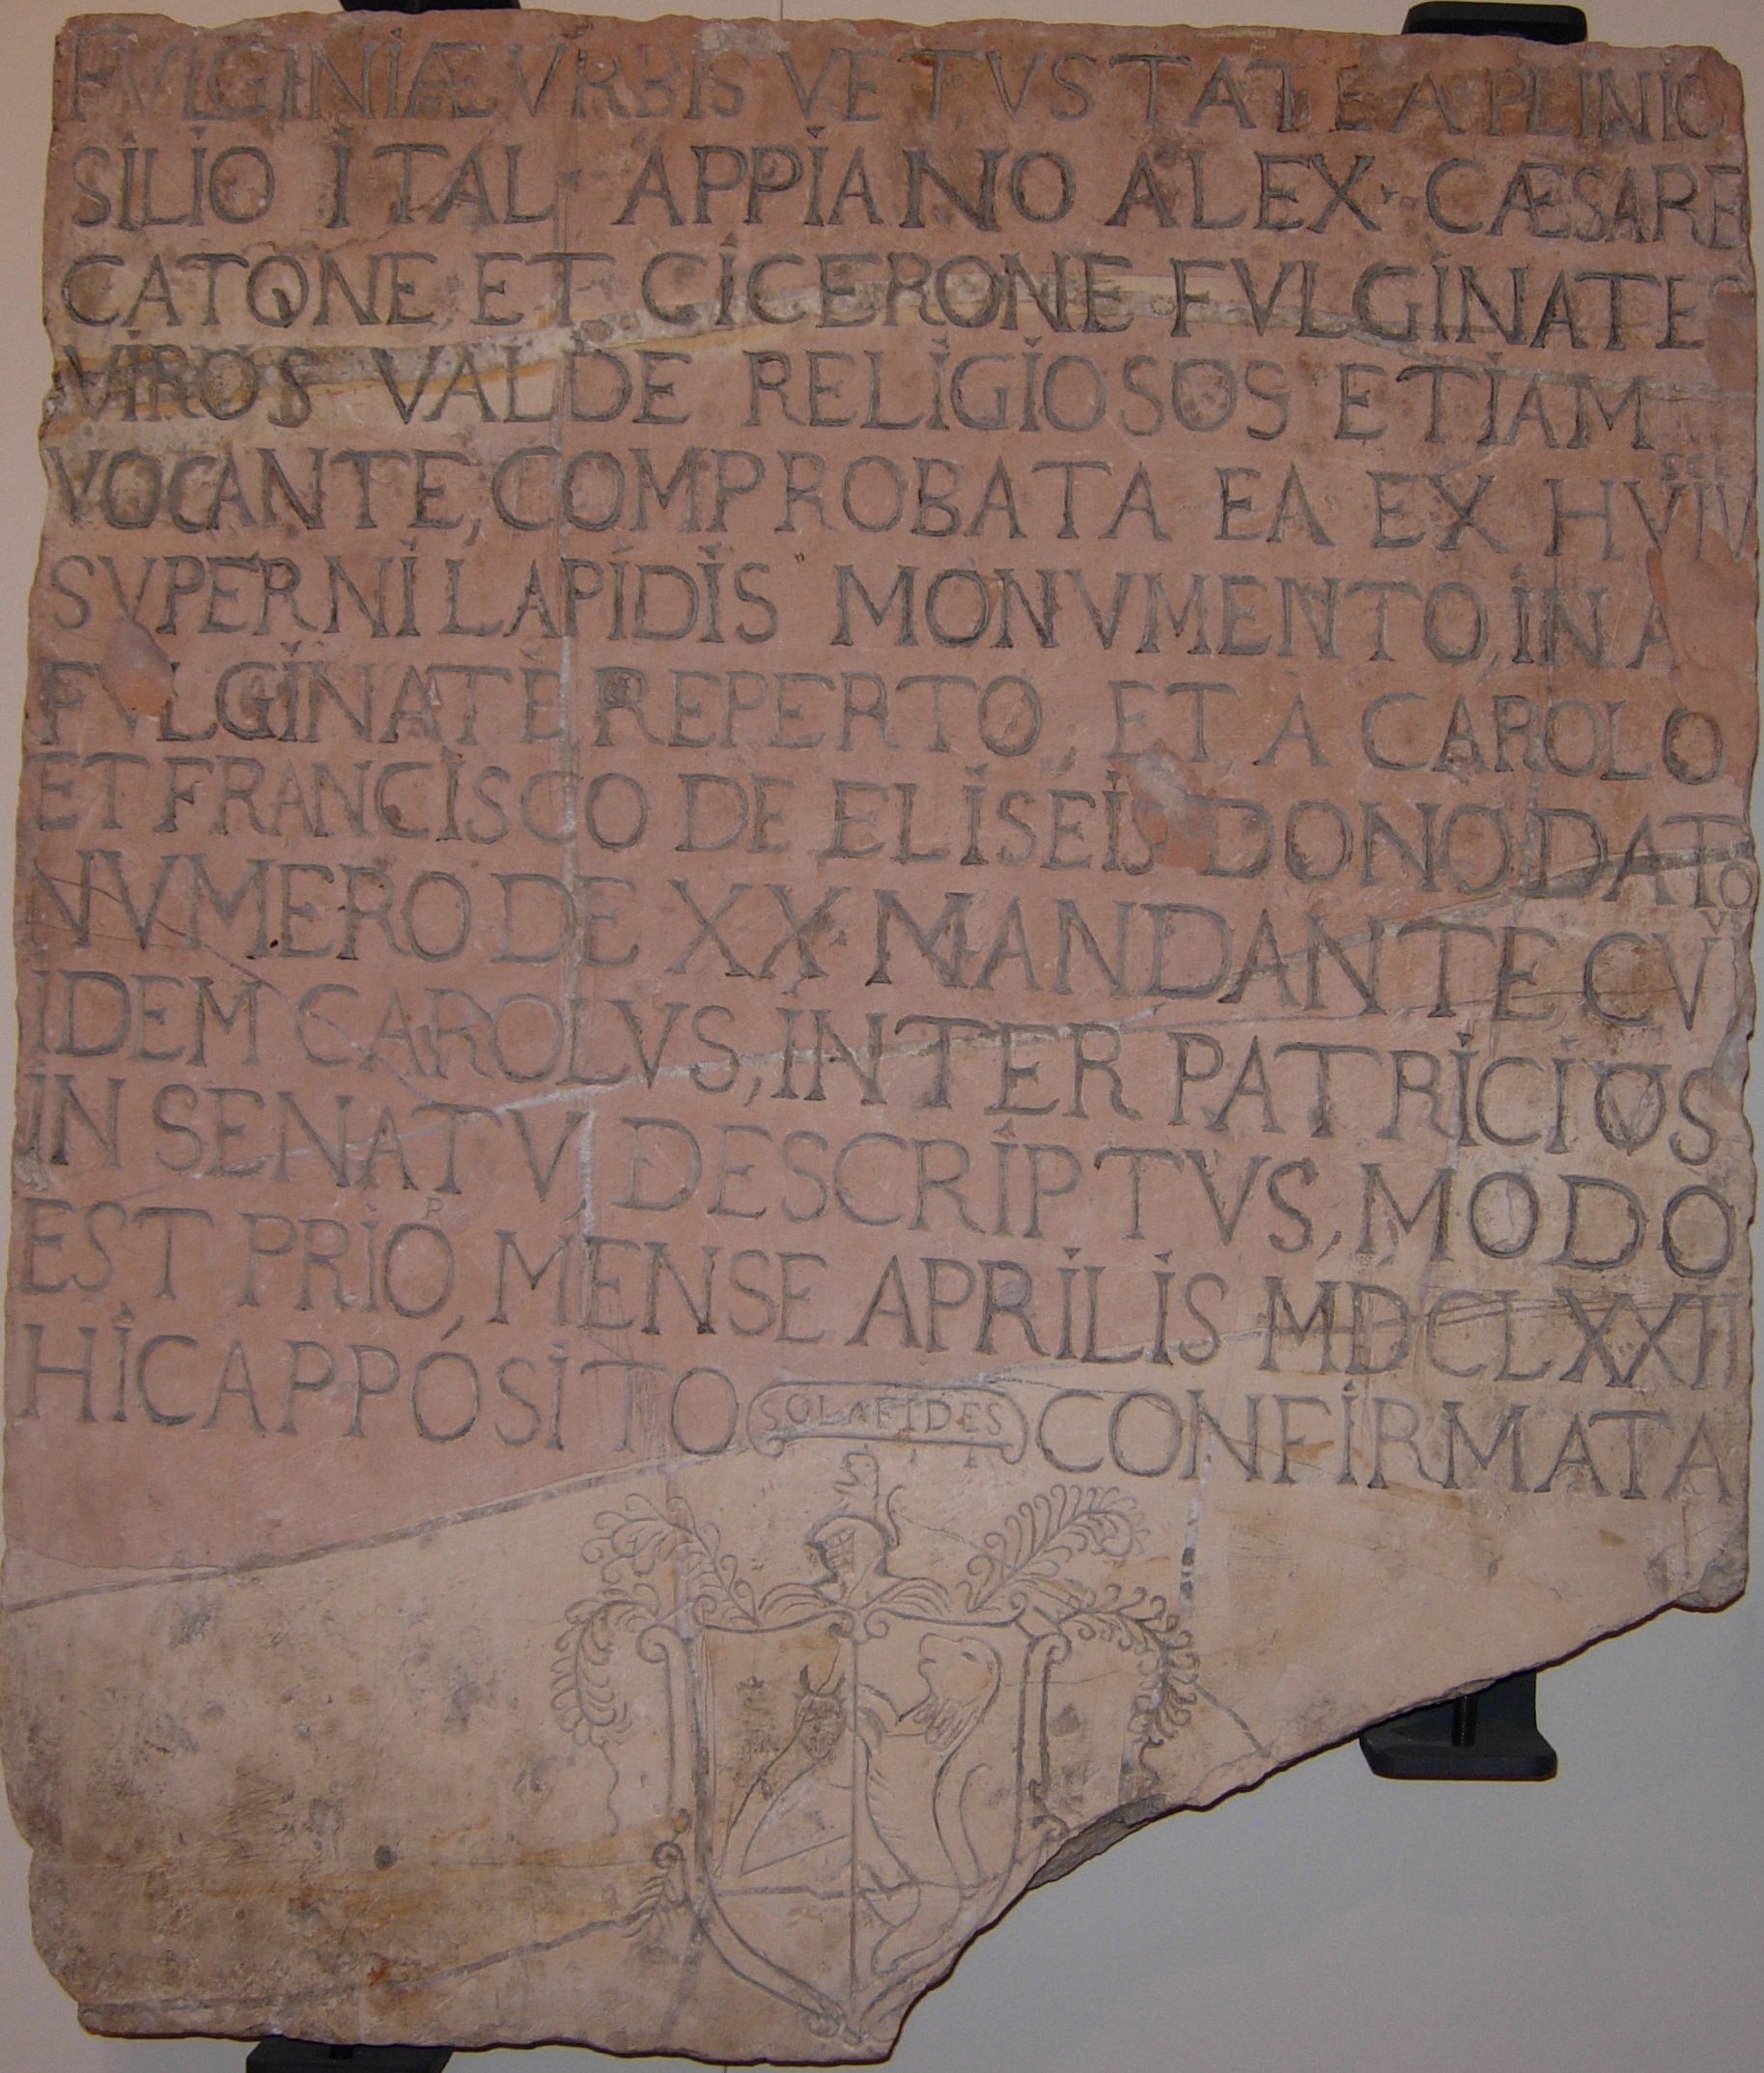 FVLGINIÆ VRBIS VETVSTATE A PLINIO
SILIO ITAL · APPIANO ALEX · CÆSARE
CATONE ET CICERONE FVLGINATES
VIROS VALDE RELIGIOSOS ETIAM
VOCANTE, COMPROBATA EA EX
SVPERNI LAPIDIS MONVMENTO, IN
FVLGINATE REPERTO, ET A CAROLO
ET FRANCISCO DE ELISEIS DONO DATO
NVMERO DE XX · MANDANTE CVIVS
IDEM CAROLVS, INTER PATRICIOS
IN SENATV, DESCRIPTVS, MODO
EST PRIOR, MENSE APRILIS MDCLXXII
HIC APPOSITO SOLA FIDES CONFIRMATA